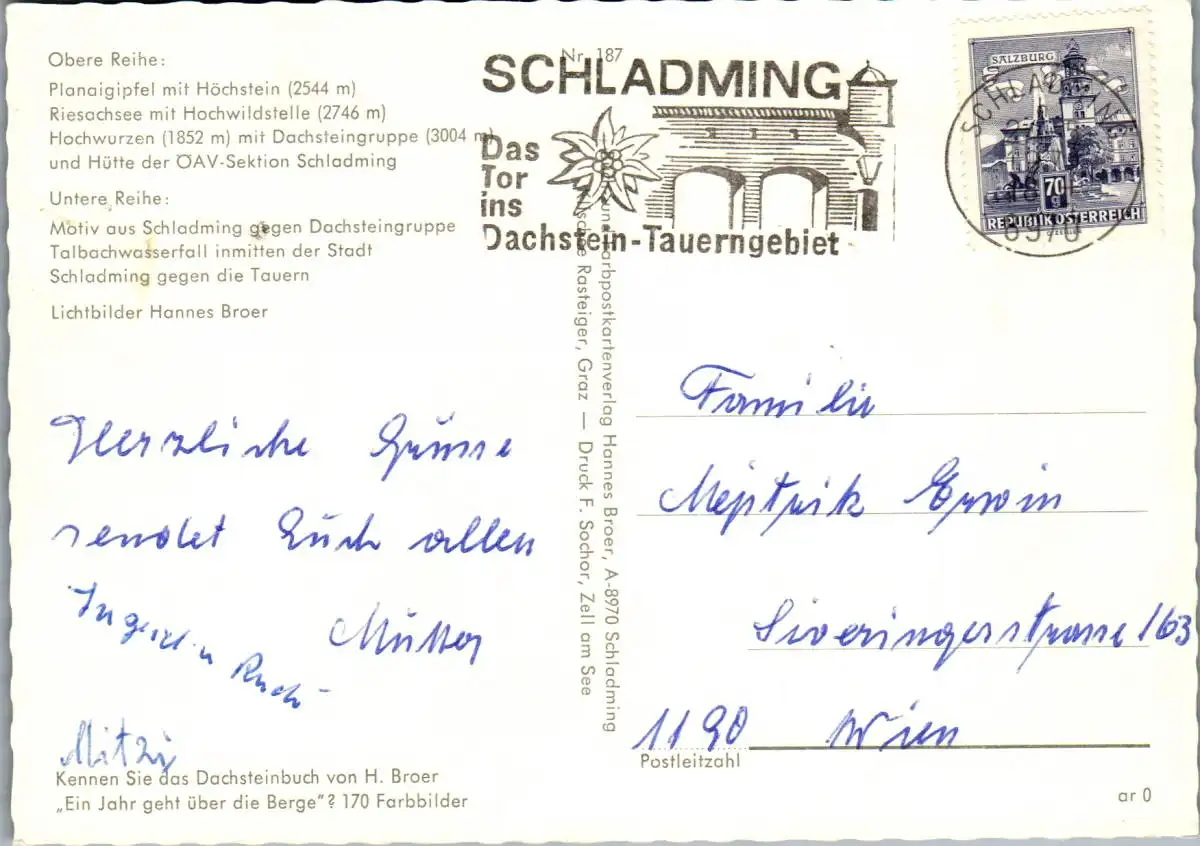 Obere Reihe:
Planaigipfel mit Höchstein (2544 m)
Riesachsee mit Hochwildstelle (2746 m)
Hochwurzen (1852 m) mit Dachsteingruppe (3004 m)
und Hütte der ÖAV-Sektion Schladming
Untere Reihe:
Motiv aus Schladming gegen Dachsteingruppe
Talbachwasserfall inmitten der Stadt
Schladming gegen die Tauern
Lichtbilder Hannes Broer
Nr. 187
SCHLADMING
Das
Tor
ins
Dachstein-Tauerngebiet
SALZBURG
70
g
REPUBLIK ÖSTERREICH
SCHLADMING
8970
Farbpostkartenverlag Hannes Broer, A-8970 Schladming
Rasteiger, Graz — Druck F. Sochor, Zell am See
Herzliche Grüsse
sendet Euch allen
Mutter
Mitzi
Familie
Erwin
Sieveringerstrasse 163
1190 Wien
Postleitzahl
Kennen Sie das Dachsteinbuch von H. Broer
„Ein Jahr geht über die Berge"? 170 Farbbilder
ar 0